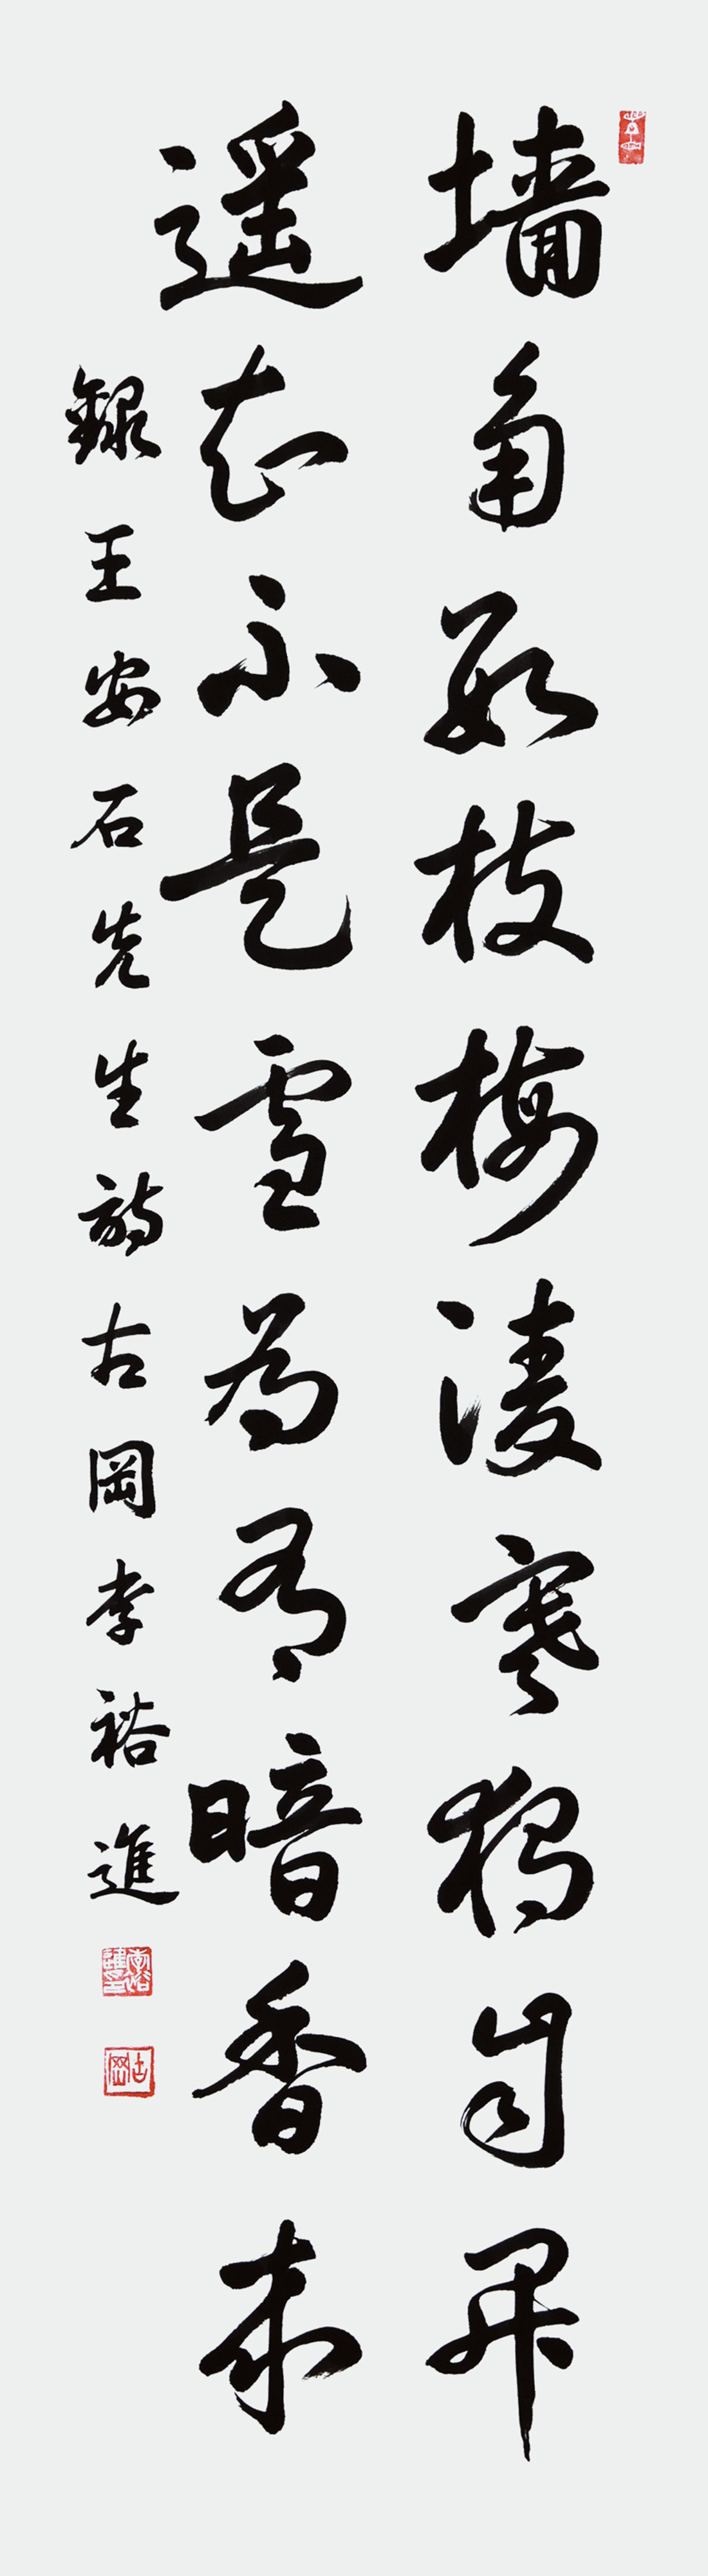 墻角數枝梅凌寒獨自開
遙知不是雪為有暗香來
錄王安石先生詩古岡李裕進
古岡